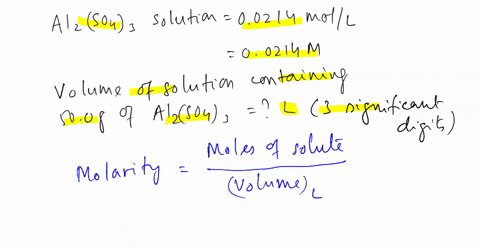 Al₂(SO₄)₃ solution = 0.0214 mol/L
= 0.0214 M
Volume of solution containing
50.0g of Al₂(SO₄)₃ = ? L (3 significant digits)
Molarity = Moles of solute / (Volume)L